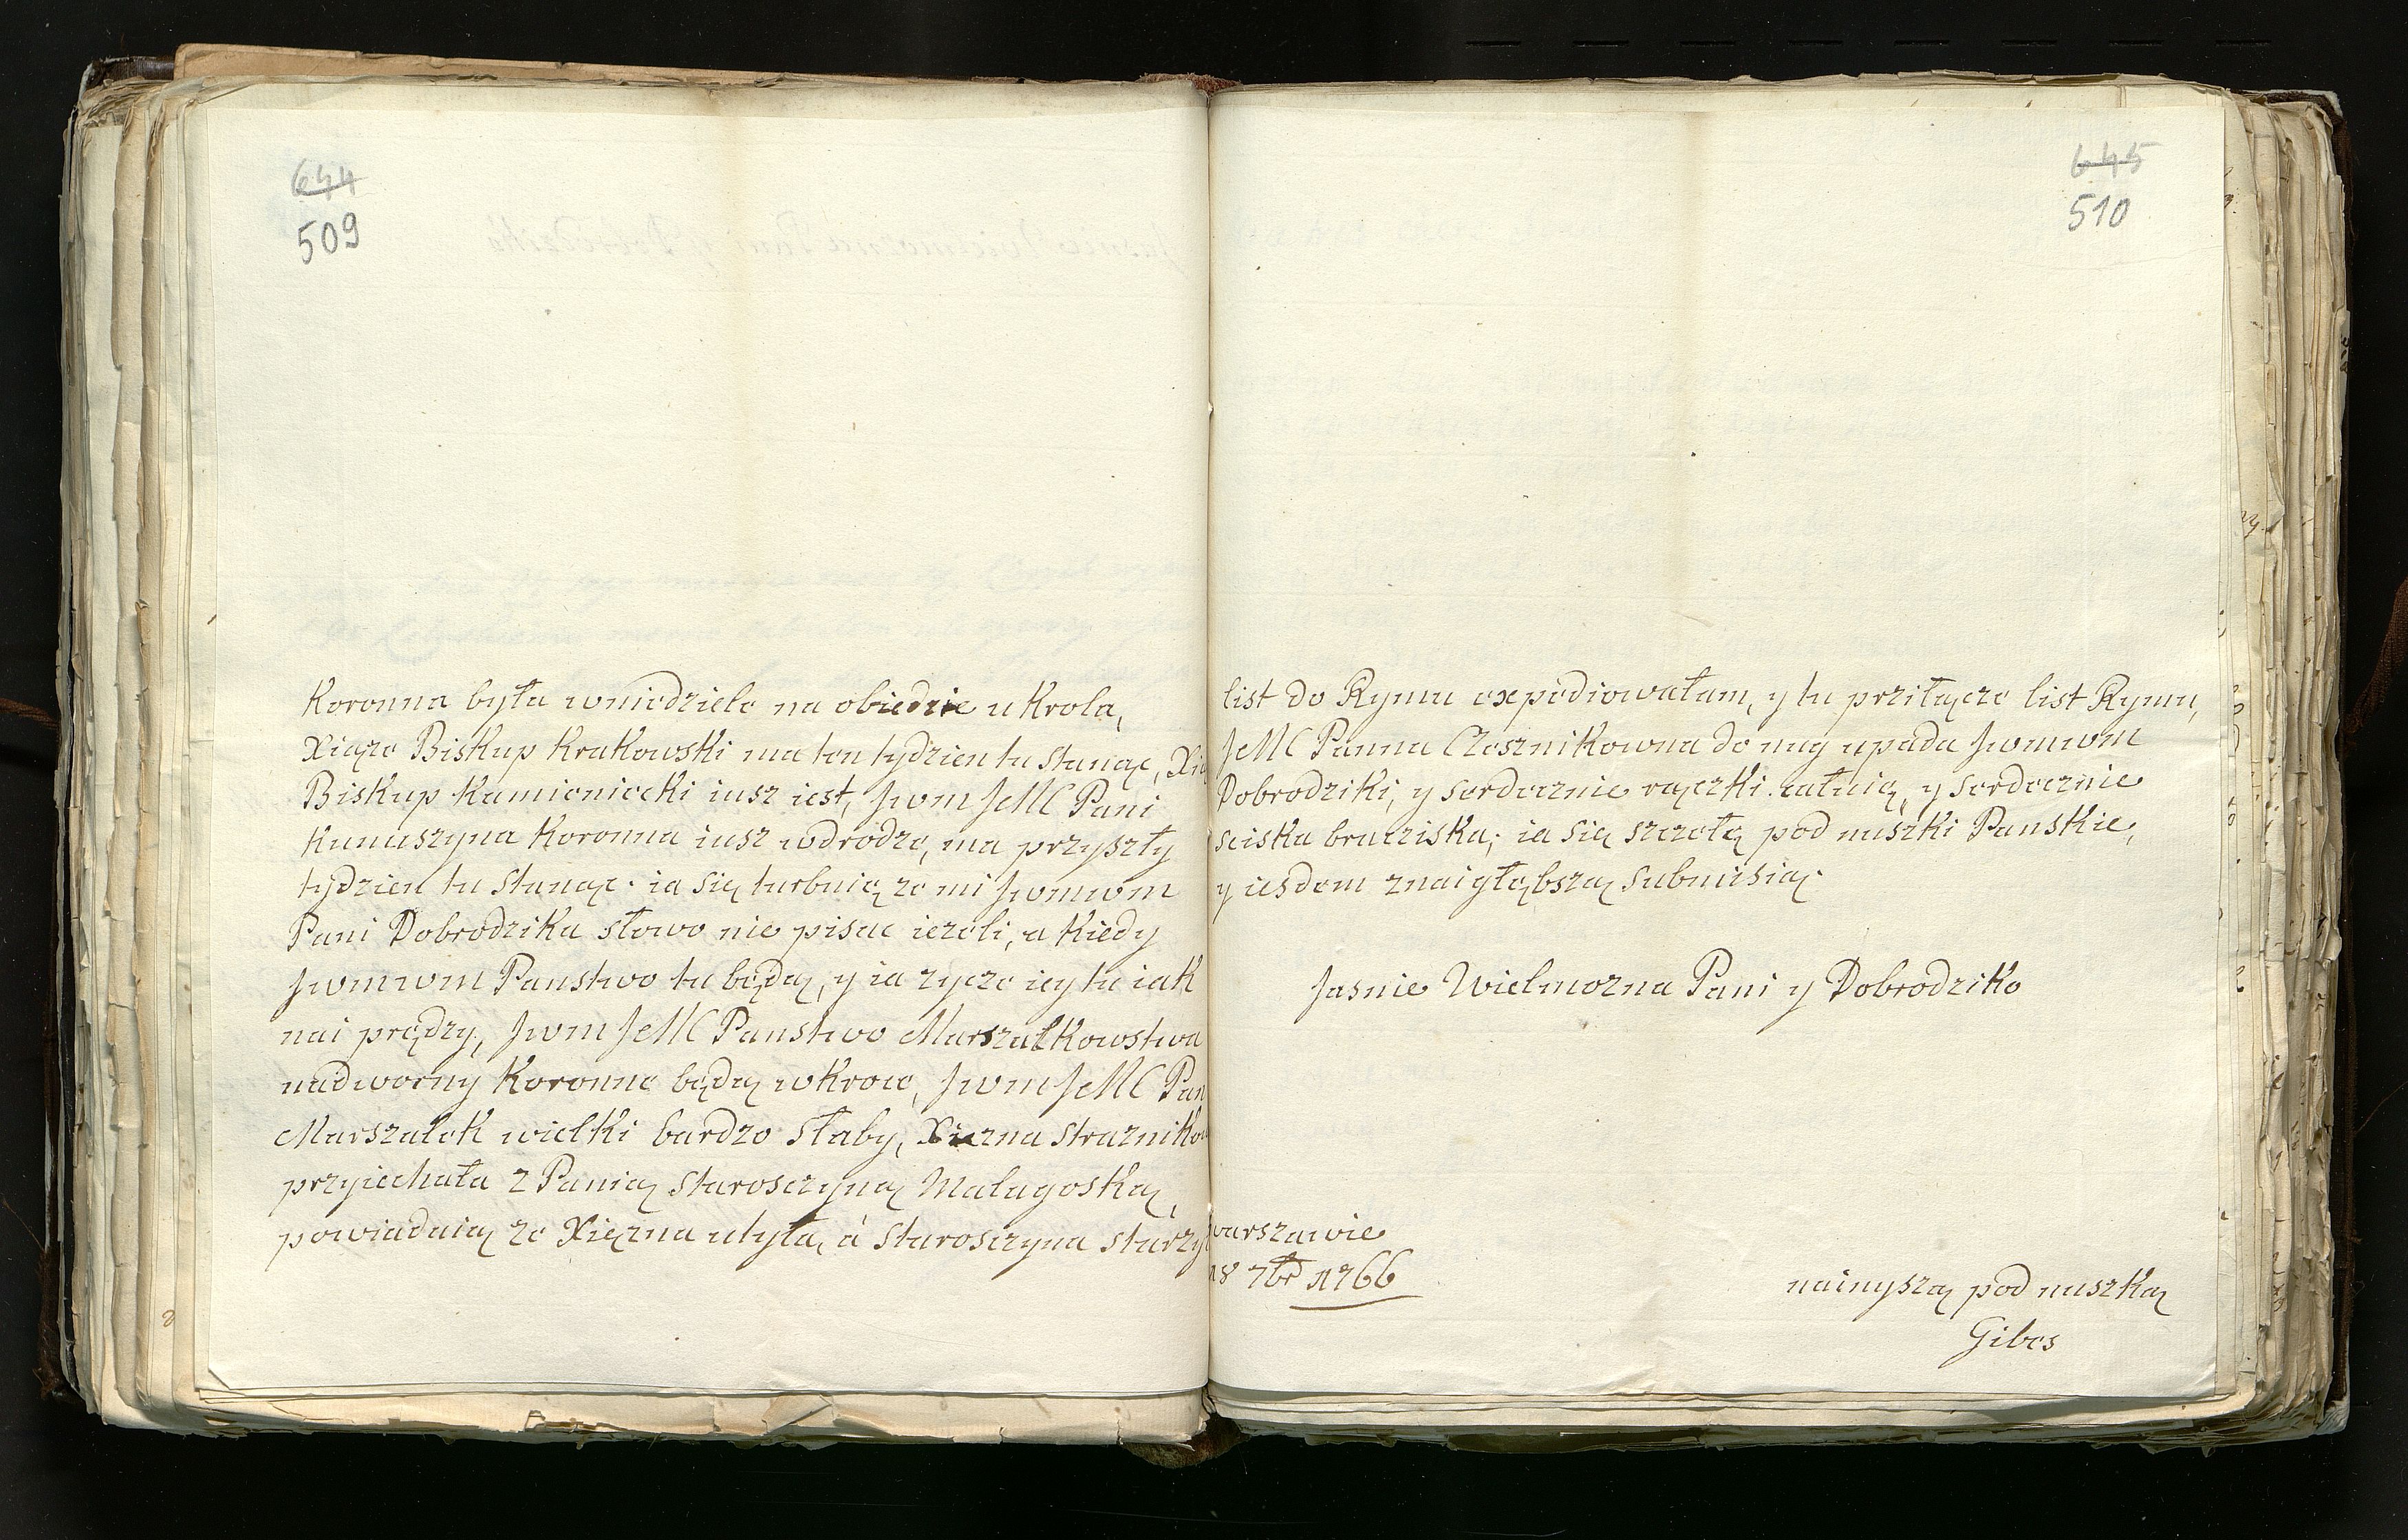 644
509
Koronna była wniedziele na obiedzie u Krola,
Xiąze Biskup Krakowski ma ten tydzien tu stanąc, Xią
Biskup Kamieniecki iusz iest, Jwm JeMC Pani
Kunuszyna Koronna iusz wdrodze, ma przyszły
tydzien tu stanąc. ia się turbuię ze mi Jwmwm
Pani Dobrodzika słowo nie pisac iezeli, a kiedy
Jwmwm Panstwo tu będą, y ia zycze iey tu iak
nai prędzy, Jwm JeMC Panstwo Marszalkowstwa
nadworny Koronne będą wKrowe, Jwm JeMC Pan
Marszalek wielki bardzo słaby, Xiezna Straznikow
przyiechała z Panią Staroscyną Malagoską,
powiaduią ze Xięzna utyła, á Staroscyna starzy
645
510
list do Rymu expediowałam, y tu przyłącze list Rymu,
JeMC Panna Czesznikowna do nug upada Jwmwm
Dobrodziki, y serdecznie rączki całuię, y serdecznie
sciska braciska; ia się szczełę pod nuszki Panskie,
y iesdem znaigłębszą submisią.
Jasnie Wielmozna Pani y Dobrodziko
warszawie
18 7br 1766
nainyszą pod nuszką
Gibes